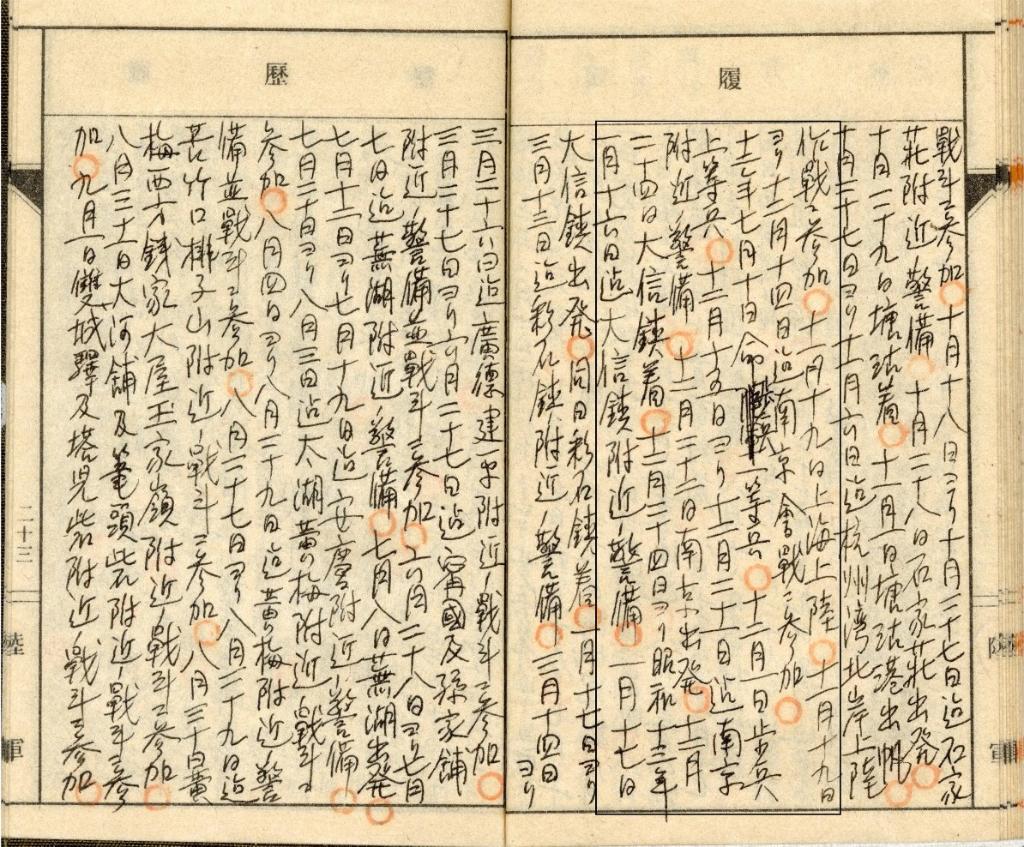 履
戰斗ニ参加〇十月十八日ヨリ十月二十七日迠石家
莊附近ノ警備〇十月二十八日石家莊出発〇
十月二十九日塘沽着〇十一月一日塘沽港出帆〇
十月二十七日ヨリ十一月六日迠杭州湾北岸上陸
作戰ニ参加〇十一月十九日上海上陸〇十一月十九日
ヨリ十二月十四日迠南京會戰ニ参加〇
十二年七月十日命 一等兵〇十二月一日歩兵
上等兵〇十二月十五日ヨリ十二月二十一日迠南京
附近ノ警備〇十二月二十二日南京出発〇十二月
二十四日大信鎮着〇十二月二十四日ヨリ昭和十三年
一月十六日迠大信鎮附近ノ警備〇一月十七日
大信鎮出発〇同日彩石鎮着〇一月十七日ヨリ
三月十三日迠彩石鎮附近ノ警備〇三月十四日ヨリ
歷
三月二十六日迠廣德建平附近ノ戰斗ニ参加〇
三月二十七日ヨリ六月二十七日迠甯國及孫家鋪
附近ノ警備並戰斗ニ参加〇六月二十八日ヨリ七月
七日迠蕪湖附近ノ警備〇七月八日蕪湖出発〇
七月十二日ヨリ七月十九日迠安慶附近ノ警備〇
七月二十日ヨリ八月三日迠太湖黄梅附近ノ戰斗ニ
参加〇八月四日ヨリ八月二十九日迠黄梅附近ノ警
備並戰斗ニ参加〇八月二十七日ヨリ八月二十九日迠
苦竹口排子山附近ノ戰斗ニ参加〇八月三十日黄
梅西方銭家大屋王家嶺附近ノ戰斗ニ参加〇
八月三十一日大河鋪及筆頭岩附近ノ戰斗ニ参
加〇九月一日雙城驛及塔児岩附近ノ戰斗ニ参加〇
二十三
陸
軍